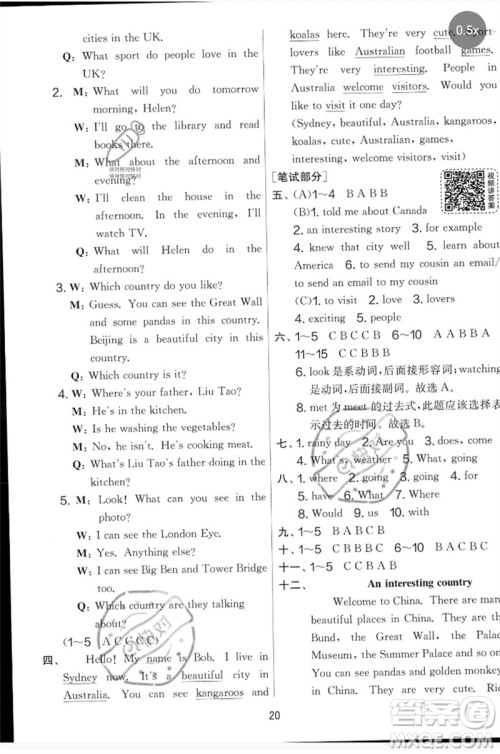 cities in the UK.
Q: What sport do people love in the
UK?
2. M: What will you do tomorrow
morning, Helen?
W: I'll go to the library and read
books there.
M: What about the afternoon and
evening?
W: I'll clean the house in the
afternoon. In the evening, I'll
watch TV.
Q: What will Helen do in the
afternoon?
3. W: Which country do you like?
M: Guess. You can see the Great Wall
and some pandas in this country.
Beijing is a beautiful city in this
country.
Q: Which country is it?
4. W: Where's your father, Liu Tao?
M: He's in the kitchen.
W: Is he washing the vegetables?
M: No, he isn't. He's cooking meat.
Q: What's Liu Tao's father doing in the
kitchen?
5. M: Look! What can you see in the
photo?
W: I can see the London Eye.
M: Yes. Anything else?
W: I can see Big Ben and Tower Bridge
too.
Q: Which country are they talking
about?
(1~5 A C C C C)
四、 Hello! My name is Bob. I live in
Sydney now. It's a beautiful city in
Australia. You can see kangaroos and
koalas here. They're cute. Sport-
lovers like Australian football games.
They're very interesting. People in
Australia welcome visitors. Would you
like to visit it one day?
(Sydney, beautiful, Australia, kangaroos,
koalas, cute, Australian, games,
interesting, welcome visitors, visit)
[笔试部分]
五、(A)1~4 B A B B
(B)1. told me about Canada
2. an interesting story 3. for example
4. knew that city well 5. learn about
America 6. to send my cousin an email/
to send an email to my cousin
(C)1. to visit 2. like 3. lovers
4. exciting 5. people
六、1~5 C B C C B 6~10 A A B B A
11~15 C C B B B
5. look 是系动词,后面接形容词;watch
是动词,后面接副词。故选 A。
8. met 为 meet 的过去式,此题应该表
示过去的时间。故选 B。
七、1. rainy day 2. Are you 3. does
4. What's weather 5. What about
八、1. where 2. going 3. going 4. for
5. have 6. What 7. Where
8. Would 9. us 10. with
九、1~5 B A B C B
十、1~5 C B B B C 6~10 B A C B C
十一、1~5 C B A C B
十二、 An interesting country
Welcome to China. There are the
Bund, the Great Wall, the Palace
Museum, the Summer Palace and so on.
You can see pandas and golden monkeys
in China. They are very cute.
20
0.5x
视频讲答案
快对快对快对
快对快对快对